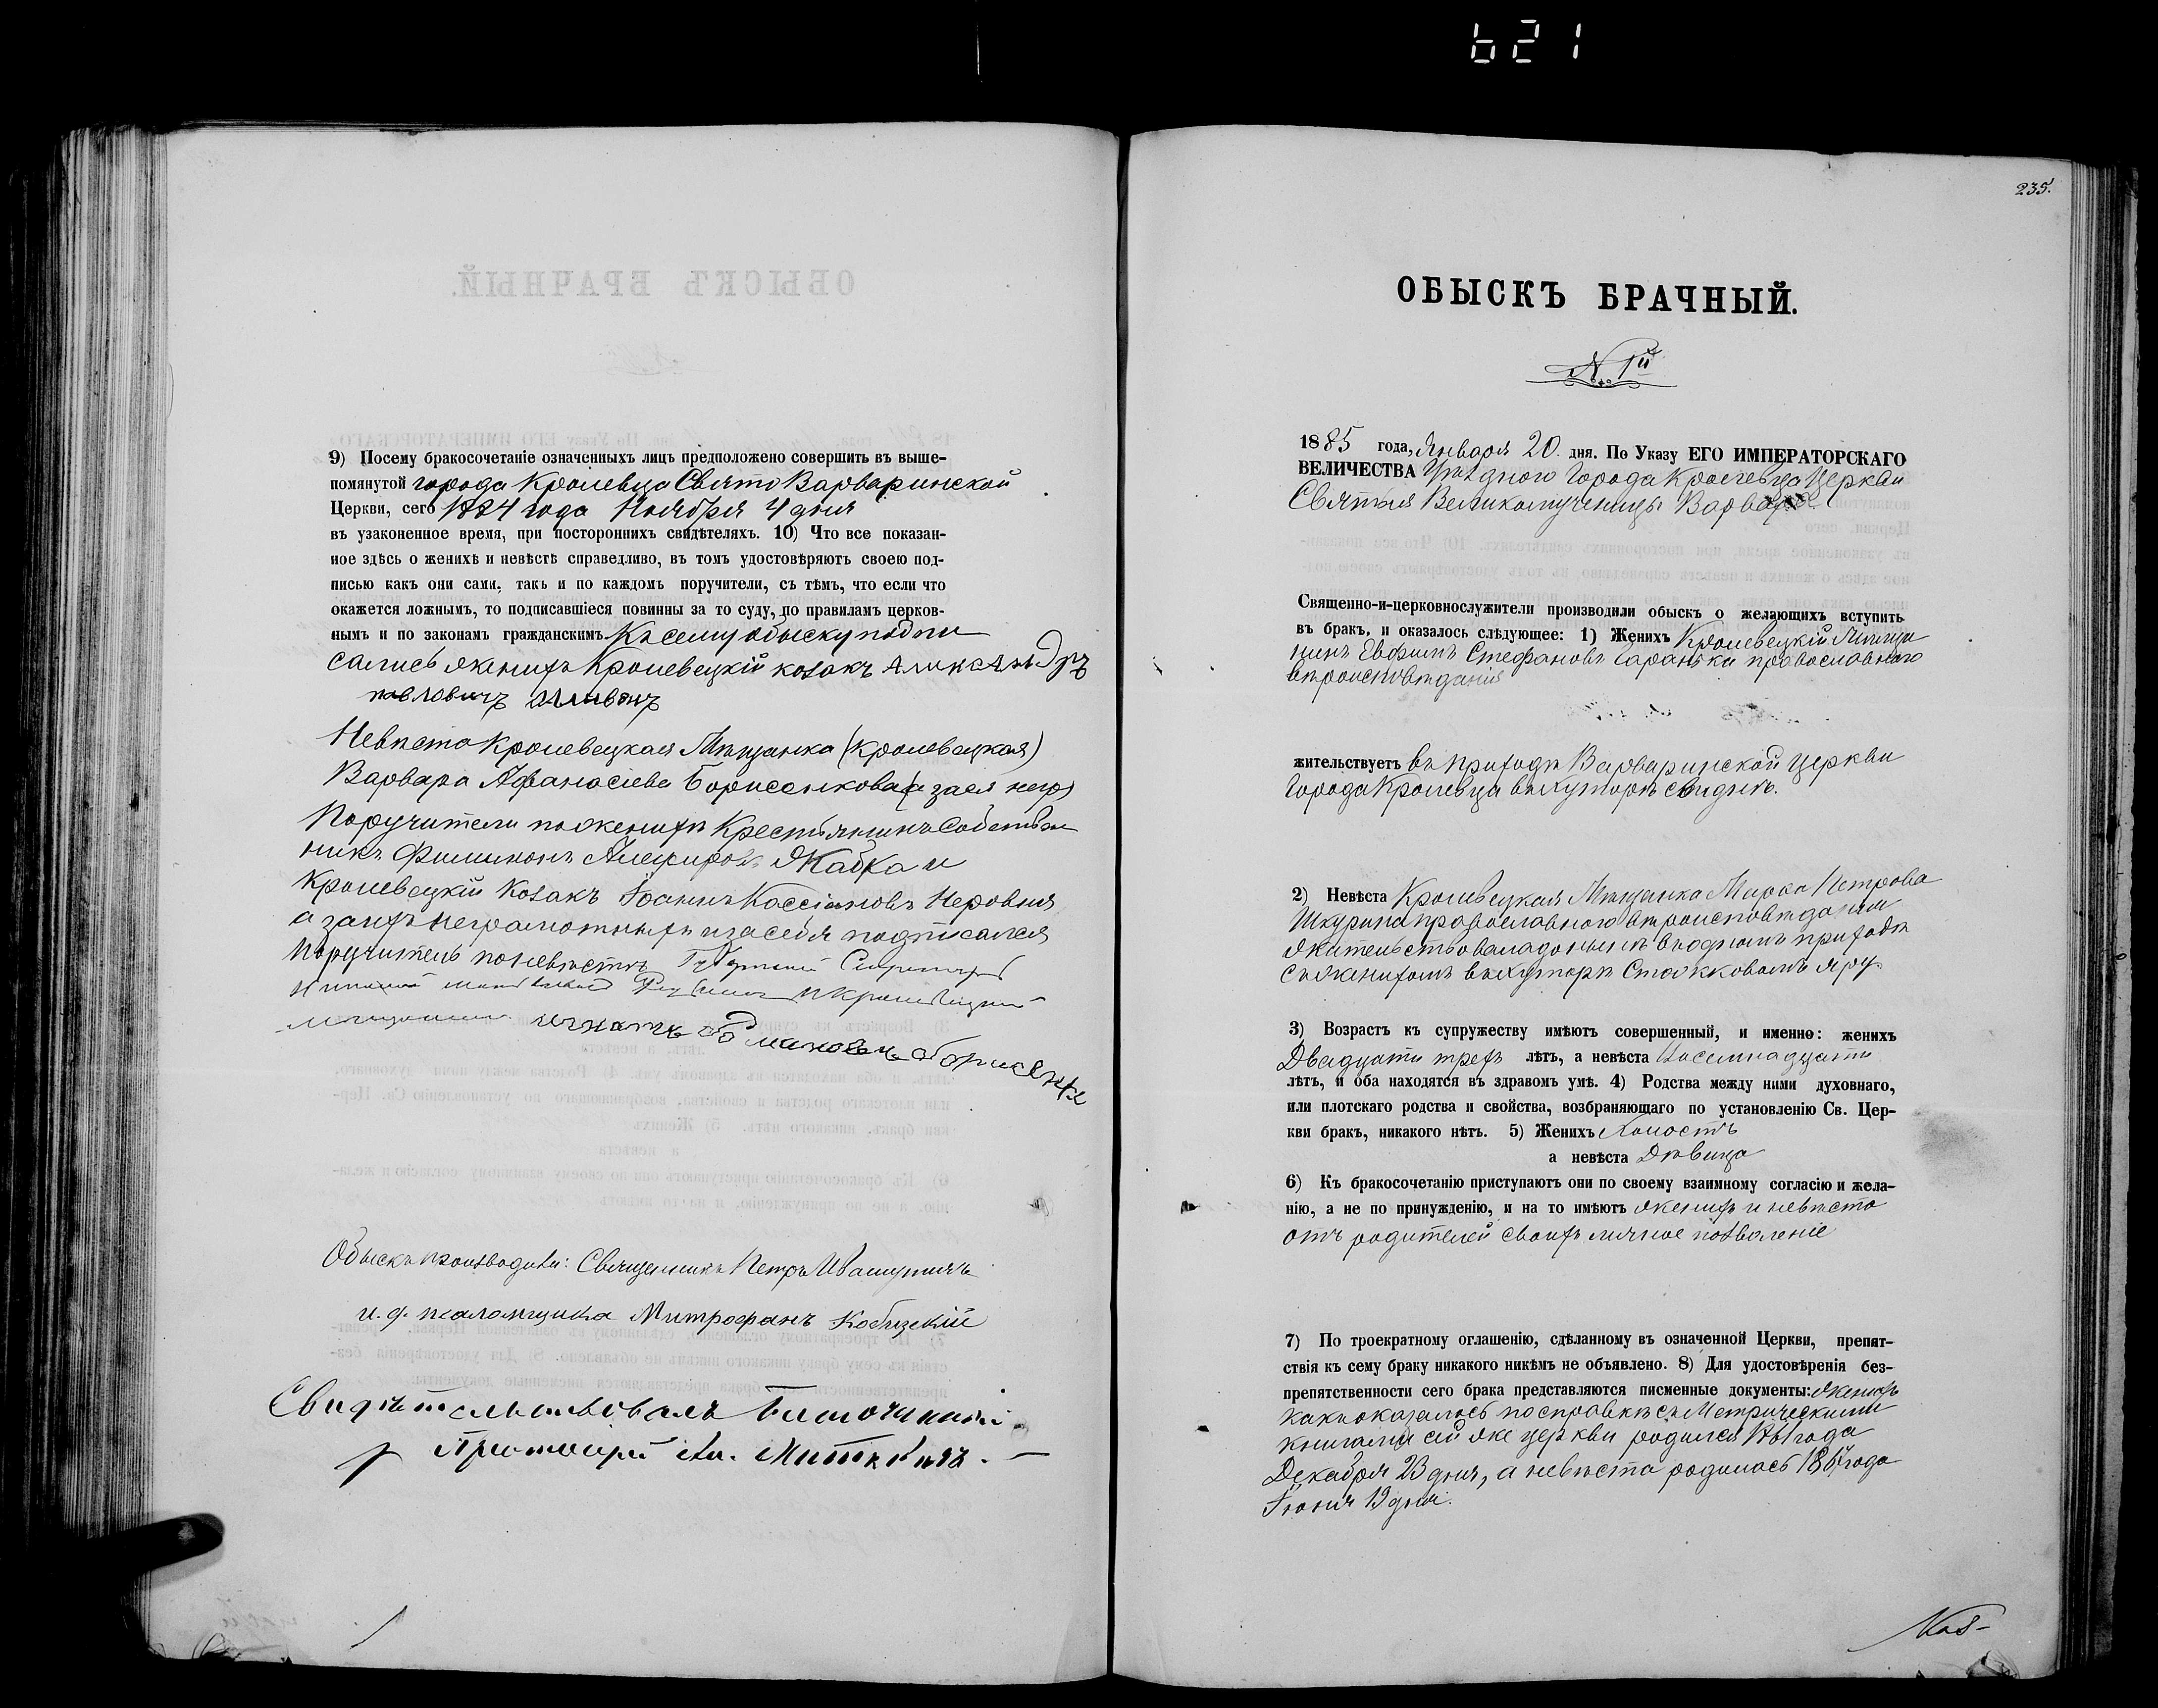 621
9) Посему бракосочетаніе означенныхъ лицъ предположено совершить въ выше-
помянутой города Кролевца Свято Варваринской
Церкви, сего 1884 года Ноября 4 дня
въ узаконенное время, при постороннихъ свидѣтеляхъ. 10) Что все показан-
ное здѣсь о женихѣ и невѣстѣ справедливо, въ томъ удостовѣряютъ своею под-
писью какъ они сами, такъ и по каждомъ поручители, съ тѣмъ, что если что
окажется ложнымъ, то подписавшіеся повинны за то суду, по правиламъ церков-
нымъ и по законамъ гражданскимъ. Къ сему обыску подпи
сались женихъ Кролевецкій козакъ Александръ
павловичъ
Невѣста Кролевецкая Мѣщанка (кролевецкая)
Варвара Афанасіева Борисенкова (а за ея негр)
Поручители по женихѣ Крестьянинъ Собствен
никъ Филимонъ Жабка и
Кролевецкій Козакъ Іоаннъ Кассіановъ Неровня
а за ихъ неграмотныхъ и за себя подписался
Поручитель по невѣстѣ Секретарь
и Кролевецкій
мѣщанинъ игнатъ романовъ борисенко
Обыскъ производили: Священникъ Петръ
и. д. псаломщика Митрофанъ Кобизскій
Свидѣтельствовалъ Благочинный
Протоіерей Ал.
235.
ОБЫСКЪ БРАЧНЫЙ.
№ 1й
1885 года, Января 20 дня. По Указу ЕГО ИМПЕРАТОРСКАГО
ВЕЛИЧЕСТВА Уѣзднаго Города Кролевца Церкви
Святыя Великомученицы Варвары
Священно-и-церковнослужители производили обыскъ о желающихъ вступить
въ бракъ, и оказалось слѣдующее: 1) Женихъ Кролевецкій Мѣща
нинъ Евфимъ Стефановъ Гаранька православнаго
вѣроисповѣданія
жительствуетъ въ приходѣ Варваринской церкви
Города Кролевца въ хуторѣ
2) Невѣста Кролевецкая Мѣщанка Марѳа Петрова
Шкурина православнаго вѣроисповѣданія
жительствовала донынѣ въ одномъ приходѣ
съ женихомъ въ хуторѣ Яру
3) Возрастъ къ супружеству имѣютъ совершенный, и именно: женихъ
Двадцати трехъ лѣтъ, а невѣста Восемнадцати
лѣтъ, и оба находятся въ здравомъ умѣ. 4) Родства между ними духовнаго,
или плотскаго родства и свойства, возбраняющаго по установленію Св. Цер-
кви бракъ, никакого нѣтъ. 5) Женихъ Холостъ
а невѣста Дѣвица
6) Къ бракосочетанію приступаютъ они по своему взаимному согласію и жела-
нію, а не по принужденію, и на то имѣютъ женихъ и невѣста
отъ родителей своихъ личное позволеніе
7) По троекратному оглашенію, сдѣланному въ означенной Церкви, препят-
ствія къ сему браку никакого никѣмъ не объявлено. 8) Для удостовѣренія без-
препятственности сего брака представляются писменные документы: женихъ
какъ оказалось по справкѣ съ Метрическими
книгами сей же церкви родился 1861 года
Декабря 23 дня, а невѣста родилась 1867 года
Іюня 19 дня.